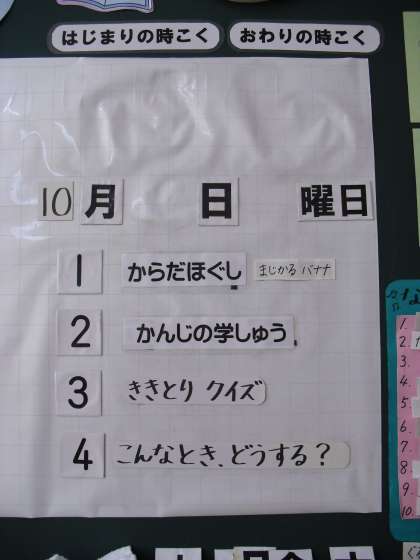 はじまりの時こく おわりの時こく
10月 日 曜日
1 からだほぐし まじかる バナナ
2 かんじの学しゅう
3 ききとり クイズ
4 こんなとき、どうする?
1.
2.
3.
4.
5.
6.
7.
8.
9.
10.